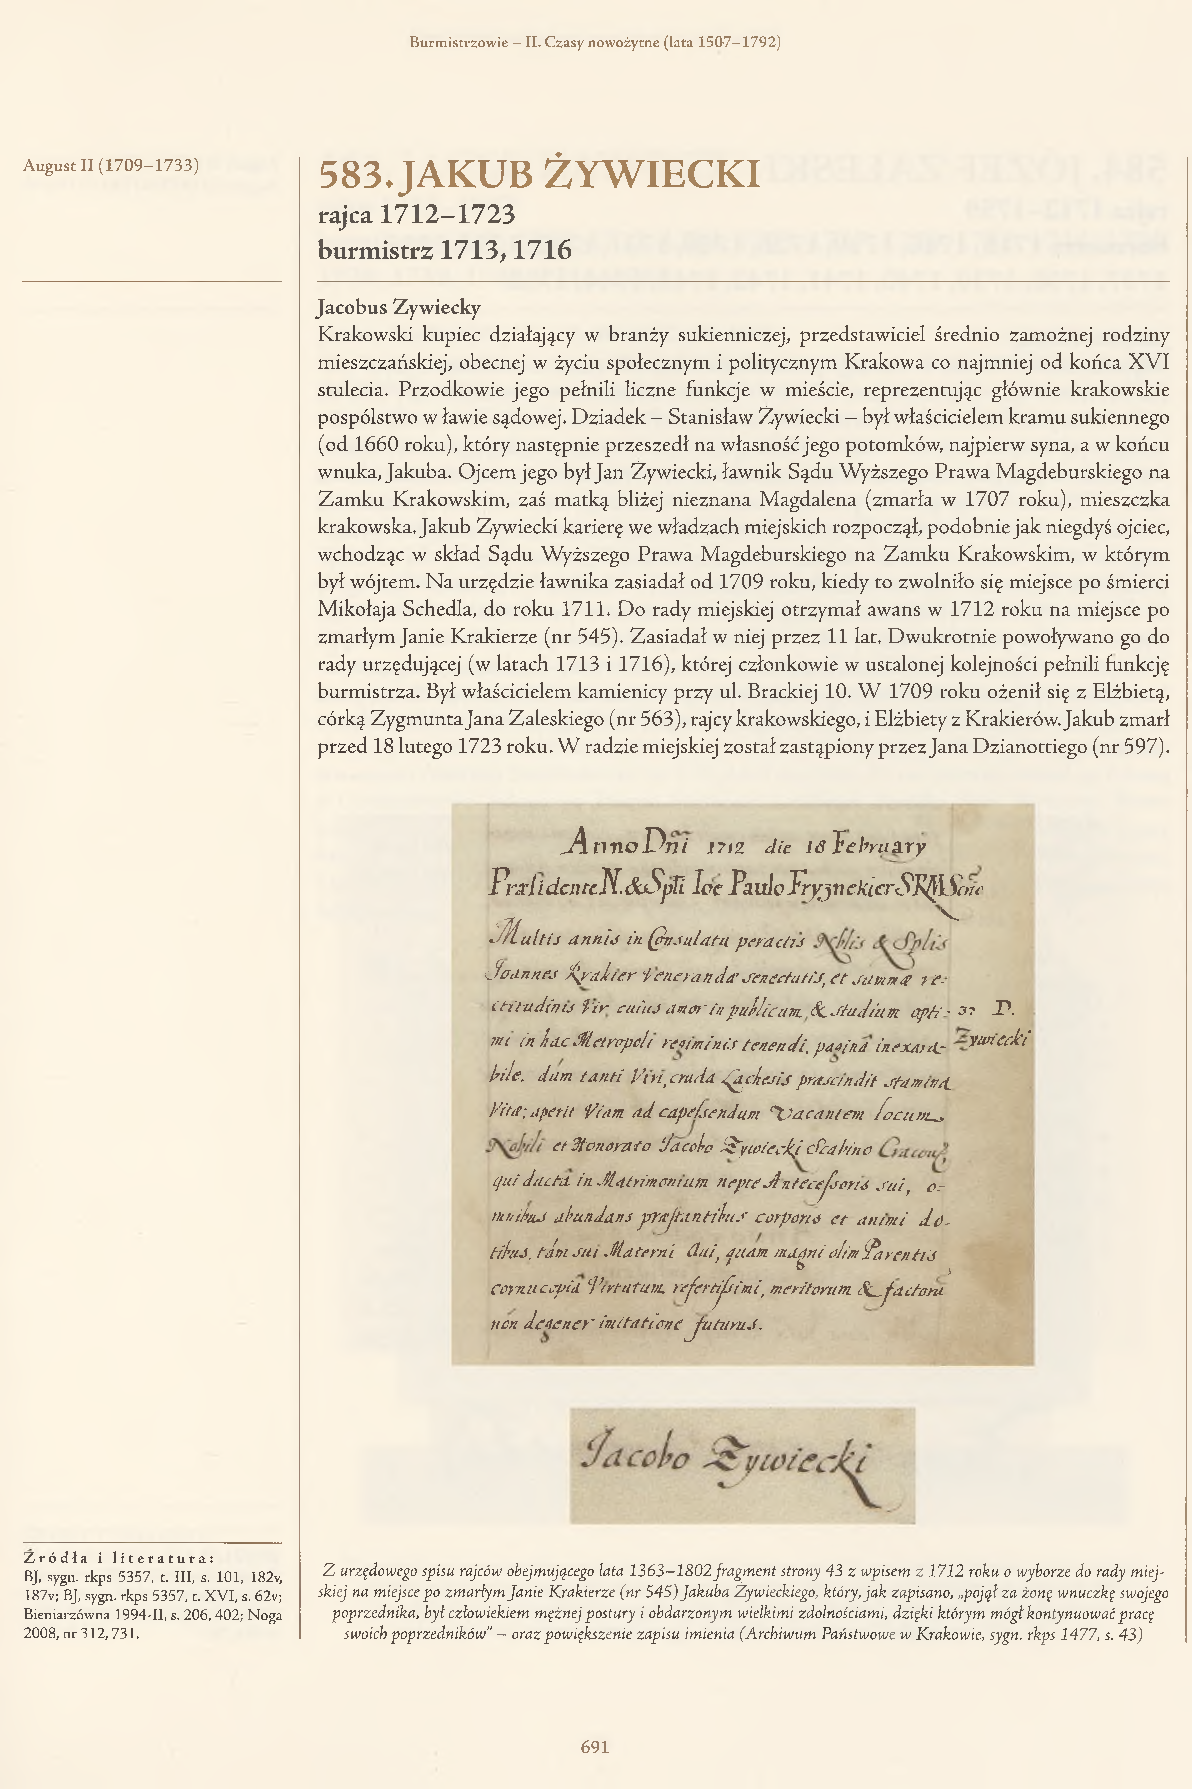 Burmistrzowie – II. Czasy nowożytne (lata 1507–1792)
August II (1709–1733)
583. JAKUB ŻYWIECKI
rajca 1712–1723
burmistrz 1713, 1716
Jacobus Zywiecky
Krakowski kupiec działający w branży sukienniczej, przedstawiciel średnio zamożnej rodziny
mieszczańskiej, obecnej w życiu społecznym i politycznym Krakowa co najmniej od końca XVI
stulecia. Przodkowie jego pełnili liczne funkcje w mieście, reprezentując głównie krakowskie
pospólstwo w ławie sądowej. Dziadek – Stanisław Żywiecki – był właścicielem kramu sukiennego
(od 1660 roku), który następnie przeszedł na własność jego potomków, najpierw syna, a w końcu
wnuka, Jakuba. Ojcem jego był Jan Żywiecki, ławnik Sądu Wyższego Prawa Magdeburskiego na
Zamku Krakowskim, zaś matką bliżej nieznana Magdalena (zmarła w 1707 roku), mieszczka
krakowska. Jakub Żywiecki karierę we władzach miejskich rozpoczął, podobnie jak niegdyś ojciec,
wchodząc w skład Sądu Wyższego Prawa Magdeburskiego na Zamku Krakowskim, w którym
był wójtem. Na urzędzie ławnika zasiadał od 1709 roku, kiedy to zwolniło się miejsce po śmierci
Mikołaja Schedla, do roku 1711. Do rady miejskiej otrzymał awans w 1712 roku na miejsce po
zmarłym Janie Krakierze (nr 545). Zasiadał w niej przez 11 lat. Dwukrotnie powoływano go do
rady urzędującej (w latach 1713 i 1716), której członkowie w ustalonej kolejności pełnili funkcję
burmistrza. Był właścicielem kamienicy przy ul. Brackiej 10. W 1709 roku ożenił się z Elżbietą,
córką Zygmunta Jana Zaleskiego (nr 563), rajcy krakowskiego, i Elżbiety z Krakierów. Jakub zmarł
przed 18 lutego 1723 roku. W radzie miejskiej został zastąpiony przez Jana Dzianottiego (nr 597).
Anno Dni 1712 die 18 February
Præsidente N. & Spli Ioe Paulo Fryznekier SRM
Multis annis in Consulatu peractis Nblis & Splis
Joannes Krakier Venerandæ senectutis, et summæ re-
ctitudinis Vir, cuius amor in publicum, & studium opti-
37 P.
Żywiecki
mi in hac Metropoli regiminis tenendi, paginâ inexara-
bile. dum tanti Viri, cruda Lachesis præscindit stamina
Vitæ; aperit Viam ad capessendum Vacantem locum
Nobili et Honorato Jacobo Zywiecki Scabino
qui ductâ in Matrimonium nepte Antecessoris sui, o-
mnibus abundans præstantibus corporis et animi do-
tibus, tám sui Materni Aui, quám magni olim Parentis
cornucopiâ Virtutum, refertissimi, meritorum & factorum
non degener imitatione futurus.
Jacobo Zywiecki
Źródła i literatura:
BJ, sygn. rkps 5357, t. III, s. 101, 182v,
187v; BJ, sygn. rkps 5357, t. XVI, s. 62v;
Bieniarzówna 1994-II, s. 206, 402; Noga
2008, nr 312, 731.
Z urzędowego spisu rajców obejmującego lata 1363–1802 fragment strony 43 z wpisem z 1712 roku o wyborze do rady miej-
skiej na miejsce po zmarłym Janie Krakierze (nr 545) Jakuba Żywieckiego, który, jak zapisano, „pojął za żonę wnuczkę swojego
poprzednika, był człowiekiem mężnej postury i obdarzonym wielkimi zdolnościami, dzięki którym mógł kontynuować pracę
swoich poprzedników” – oraz powiększenie zapisu imienia (Archiwum Państwowe w Krakowie, sygn. rkps 1477, s. 43)
691